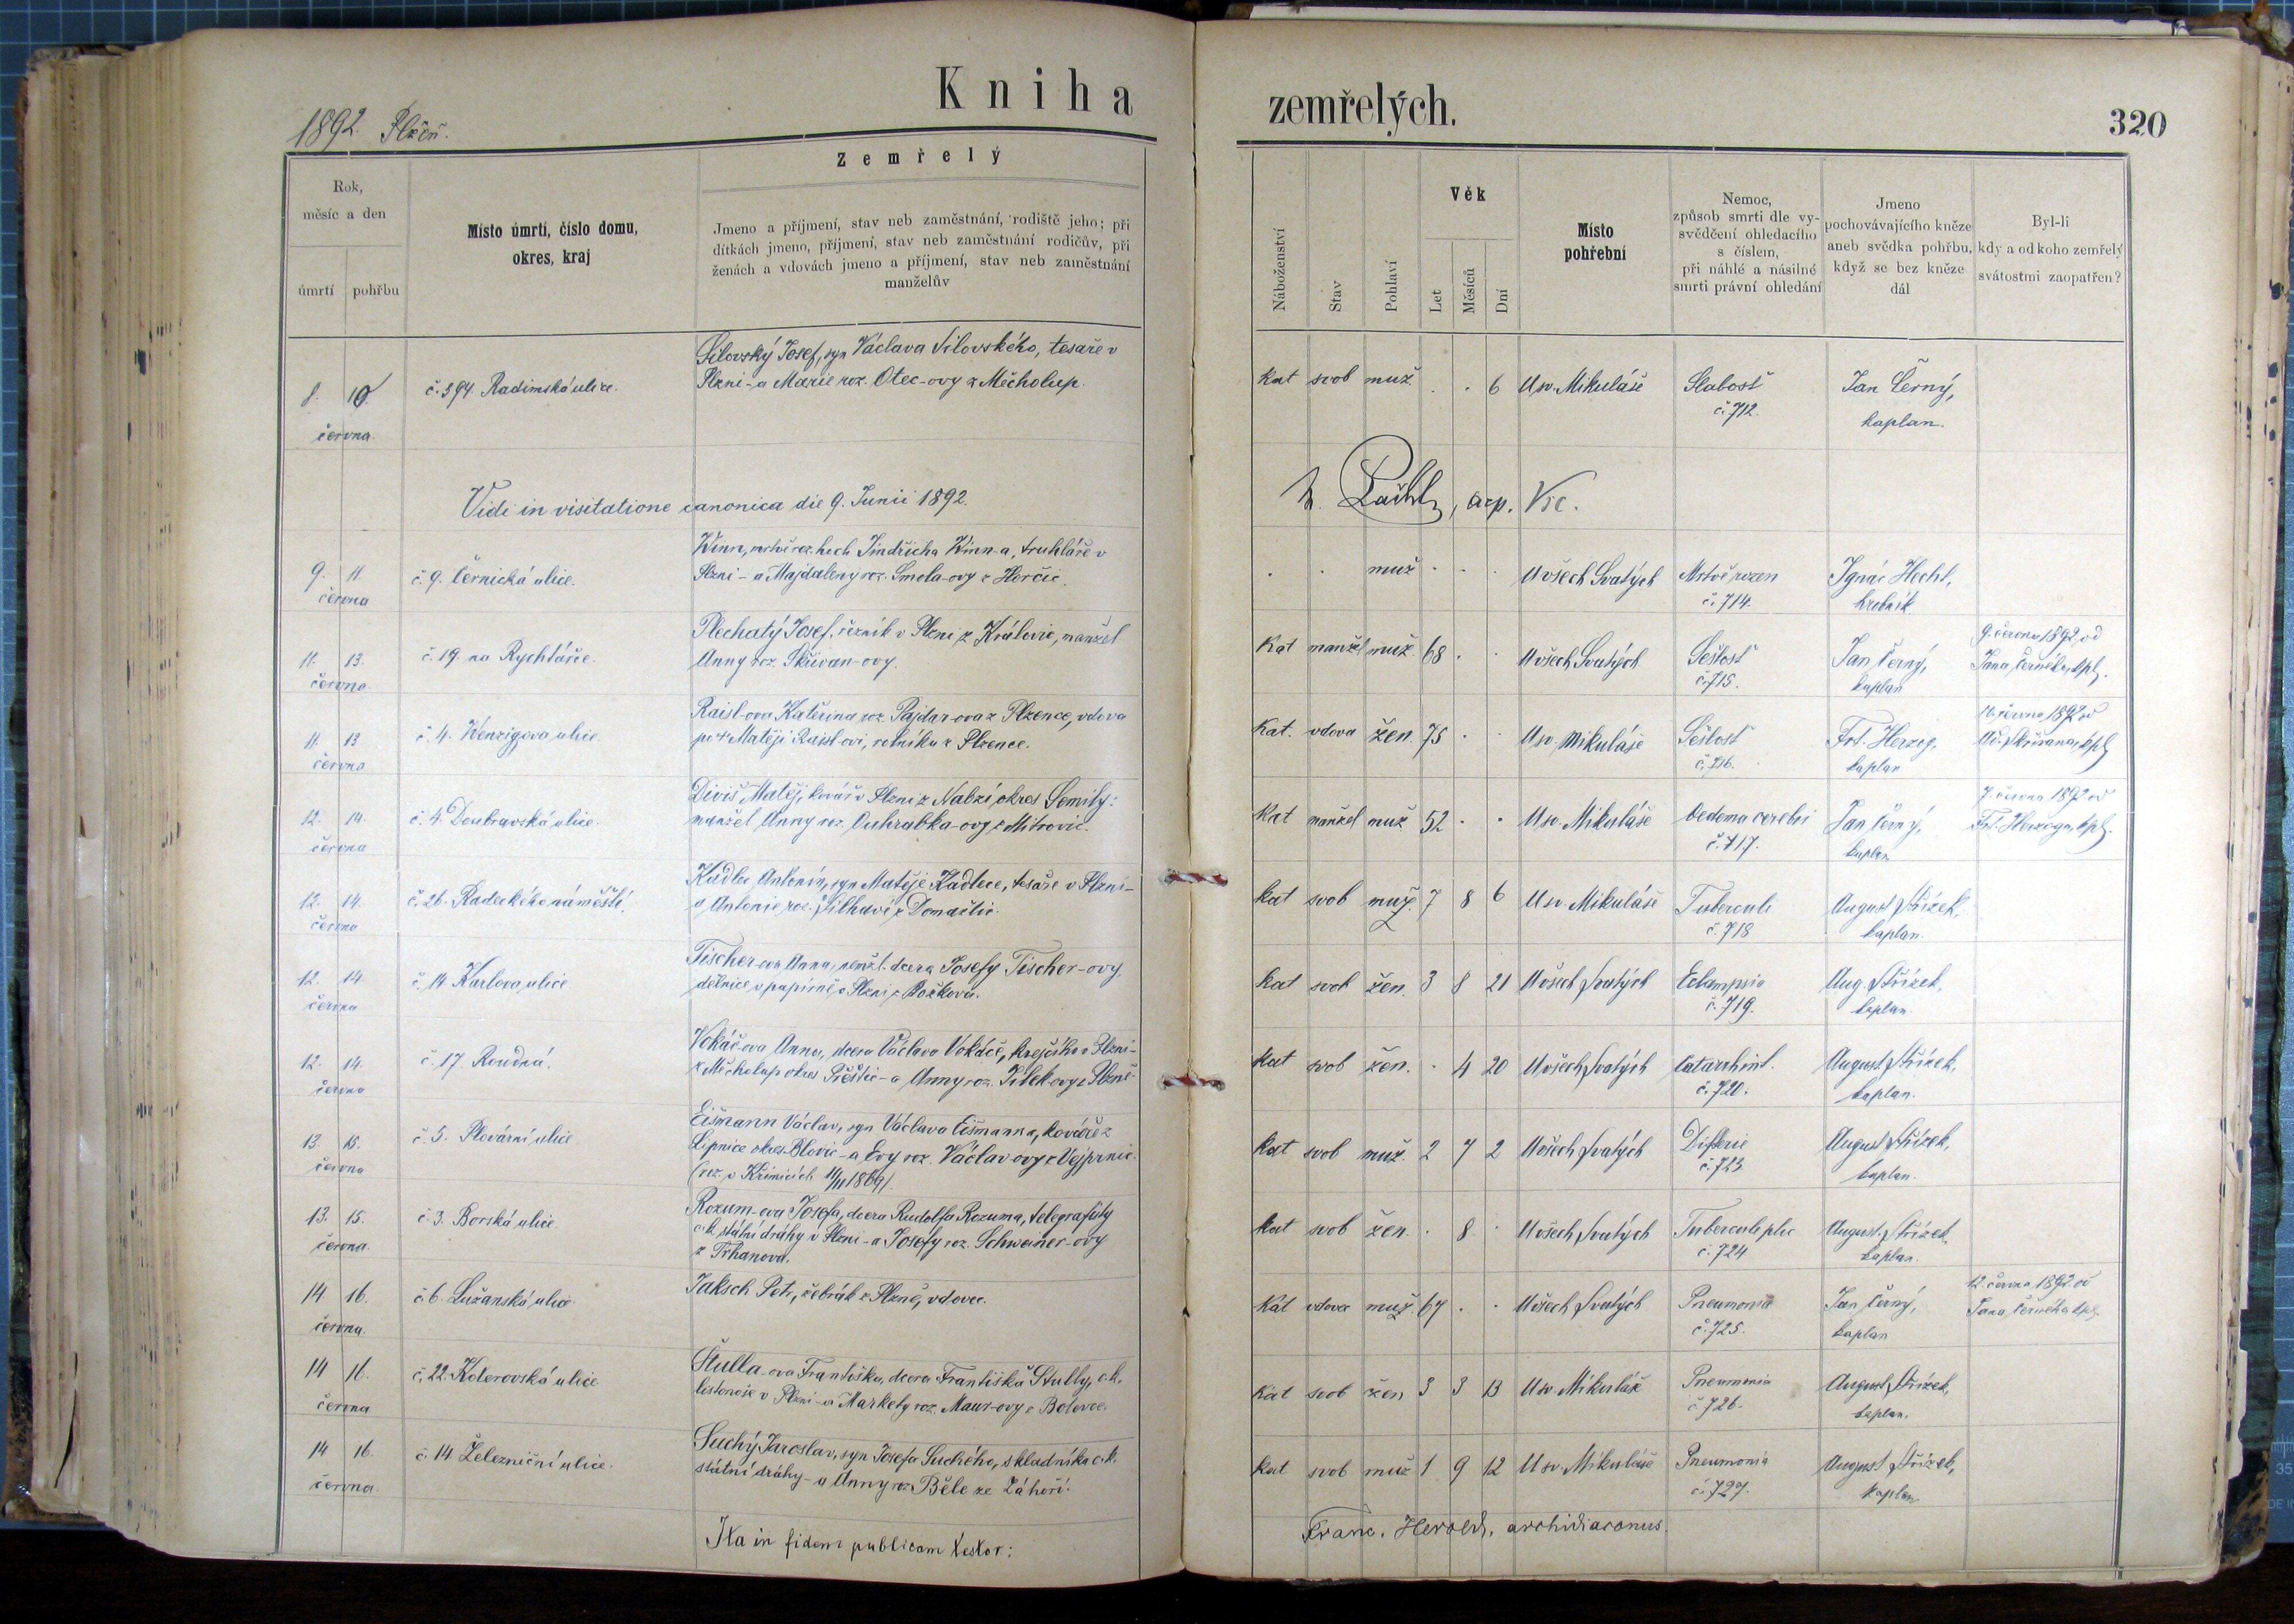 Kniha
zemřelých.
320
1892. Plzeň.
Zemřelý
Rok,
měsíc a den
úmrtí
pohřbu
Místo úmrtí, číslo domu,
okres, kraj
Jmeno a příjmení, stav neb zaměstnání, rodiště jeho; při
dítkách jmeno, příjmení, stav neb zaměstnání rodičův, při
ženách a vdovách jmeno a příjmení, stav neb zaměstnání
manželův
Náboženství
Stav
Pohlaví
Věk
Let
Měsíců
Dní
Místo
pohřební
Nemoc,
způsob smrti dle vy-
svědčení ohledacího
s číslem,
při náhlé a násilné
smrti právní ohledání
Jmeno
pochovávajícího kněze
aneb svědka pohřbu,
když se bez kněze
dál
Byl-li
kdy a od koho zemřelý
svátostmi zaopatřen?
8. 10. června
č. 394. Radimská ulice.
Silovský Josef, syn Václava Silovského, tesaře v
Plzni - a Marie roz. Otec-ovy z Měcholup.
Kat svob muž . . 6 U sv. Mikuláše Slabosť Jan Černý,
č. 712. kaplan.
Vidi in visitatione canonica die 9. Junii 1892.
9. 11. června
č. 9. Černická ulice.
Winn, mrtvě roz. hoch Jindřicha Winn-a, truhláře v
Plzni - a Majdaleny roz. Smola-ovy z Horčic.
. . muž . . . U všech Svatých Mrtvě rozen Ignác Hecht,
č. 714. hrobník
11. 13. června
č. 19. na Rychtářce.
Plechatý Josef, řezník v Plzni z Kralovic, manžel
Anny roz. Skřivan-ovy.
Kat manžel muž. 68 . . U všech Svatých Sešlosť Jan Černý, 9. června 1892 od
č. 715. kaplan Jana Černého, kpl.
11. 13 června
č. 4. Wenzigova ulice.
Raisl-ova Kateřina roz. Pajdar-ova z Plzence, vdova
po + Matěji Raisl-ovi, rolníku z Plzence.
Kat. vdova žen. 75 . . U sv. Mikuláše Sešlosť Frt. Herzog,
č. 716. kaplan
12. 14. června
č. 4. Doubravská ulice.
Diviš Matěj, kovář v Plzni z Nabzí okres Semily:
manžel Anny roz. Ouhrabka-ovy z Mitrovic.
Kat manžel muž 52 . . U sv. Mikuláše Oedema cerebri Jan Černý, 7. června 1892 od
č. 717. kaplan Frt. Herzoga, kpl.
12. 14. června
č. 26. Radeckého náměstí.
Kadlec Antonín, syn Matěje Kadlece, tesaře v Plzni -
a Antonie roz. Šilhavé z Domažlic.
Kat svob muž. 7 8 6 U sv. Mikuláše Tubercule August Střízek,
č. 718 kaplan.
12. 14. června
č. 14 Karlova ulice
Tischer-ova Anna, nemžl. dcera Josefy Tischer-ovy,
dělnice v papírně v Plzni z Božkova.
Kat svob žen. 3 8 21 U všech Svatých Eclampsia Aug. Střízek,
č. 719. kaplan.
12. 14. června
č. 17. Roudná.
Vokáč-ova Anna, dcera Václava Vokáče, krejčího v Plzni -
z Měcholup okres Přeštic - a Anny roz. Jílek-ovy z Plzně.
Kat svob žen. . 4 20 U všech Svatých Catarrh int. August Střízek,
č. 720. kaplan.
13. 15. června
č. 5. Plovární ulice
Eišmann Václav, syn Václava Eišmanna, kováře z
Lipnice okres Blovic - a Evy roz. Václav-ovy z Vejprnic.
Kat svob muž. 2 7 2 U všech Svatých Difterie August Střízek,
č. 723 kaplan.
13. 15. června.
č. 3. Borská ulice
Rozum-ova Josefa, dcera Rudolfa Rozuma, telegrafisty
c. k. státní dráhy v Plzni - a Josefy roz. Schweiner-ovy
z Trhanova.
Kat svob žen. . 8 . U všech Svatých Tubercule plic August Střízek,
č. 724 kaplan.
14 16. června.
č. 6. Lužanská ulice.
Jaksch Petr, žebrák z Plzně, vdovec.
Kat vdovec muž. 67 . . U všech Svatých Pneumonia Jan Černý, 12. června 1892 od
č. 725. kaplan Jana Černého kpl.
14 16. června
č. 22. Koterovská ulice
Štulla-ova Františka, dcera Františka Štully, c. k.
listonoše v Plzni - a Markety roz. Maur-ovy z Bolevce.
Kat svob žen 3 3 13 U sv. Mikuláše Pneumonia August Střízek,
č. 726. kaplan.
14 16. června.
č. 14 Železniční ulice.
Suchý Jaroslav, syn Josefa Suchého, skladníka c. k.
státní dráhy - a Anny roz. Běle ze Záhoří.
Kat svob muž 1 9 12 U sv. Mikuláše Pneumonia August Střízek,
č. 727. kaplan
Ita in fidem publicam testor:
Franc. Herold, archidiaconus.